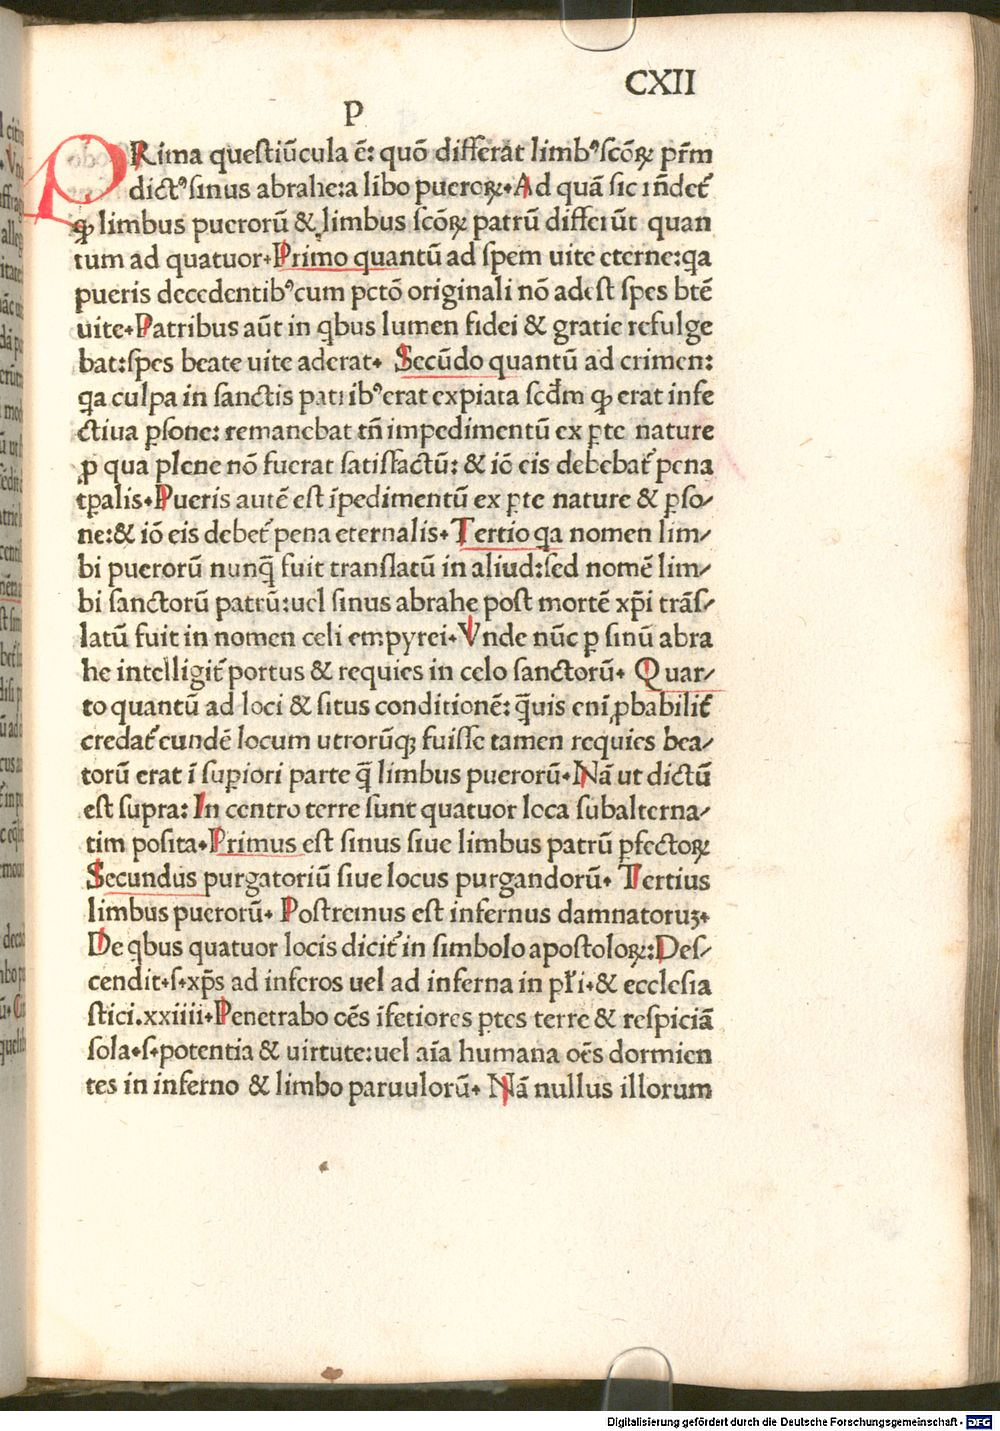 CXII
P
PRima questiūcula ē: quō differat limbꝰ scōꝝ pr̄m
dictꝰ sinus abrahe: a libo pueroꝝ. Ad quā sic in̄det᷑
ꝙ limbus puerorū & limbus scōꝝ patrū differūt quan
tum ad quatuor. Primo quantū ad spem uite eterne: qa
pueris decedentibꝰ cum pctō originali nō adest spes btē
uite. Patribus aūt in qbus lumen fidei & gratie refulge
bat: spes beate uite aderat. Secūdo quantū ad crimen:
qa culpa in sanctis patribꝰ erat expiata scd̄m ꝙ erat infe
ctiua ꝑsone: remanebat tn̄ impedimentū ex ꝑte nature
ꝓ qua plene nō fuerat satisfactū: & iō eis debebat᷑ pena
tꝑalis. Pueris autē est īpedimentū ex ꝑte nature & ꝑso⸗
ne: & iō eis debet᷑ pena eternalis. Tertio qa nomen lim⸗
bi puerorū nunq̄ fuit translatū in aliud: sed nomē lim⸗
bi sanctorū patrū: uel sinus abrahe post mortē xp̄i trās⸗
latū fuit in nomen celi empyrei. Vnde nūc ꝑ sinū abra
he intelligit᷑ portus & requies in celo sanctorū. Quar⸗
to quantū ad loci & situs conditionē: q̄uis enī ꝓbabilit᷑
credat᷑ eundē locum utrorūqꝫ fuisse tamen requies bea⸗
torū erat ī suꝑiori parte q̄ limbus puerorū. Nā ut dictū
est supra: In centro terre sunt quatuor loca subalterna⸗
tim posita. Primus est sinus siue limbus patrū ꝑfectoꝝ
Secundus purgatoriū siue locus purgandorū. Tertius
limbus puerorū. Postremus est infernus damnatoruꝫ.
De qbus quatuor locis dicit᷑ in simbolo apostoloꝝ: Des⸗
cendit.s.xp̄s ad inferos uel ad inferna in pl̄i. & ecclesia
stici.xxiiii. Penetrabo oēs īfetiores ꝑtes terre & respiciā
sola.s.potentia & uirtute: uel aīa humana oēs dormien
tes in inferno & limbo paruulorū. Nā nullus illorum
Digitalisierung gefördert durch die Deutsche Forschungsgemeinschaft - DFG